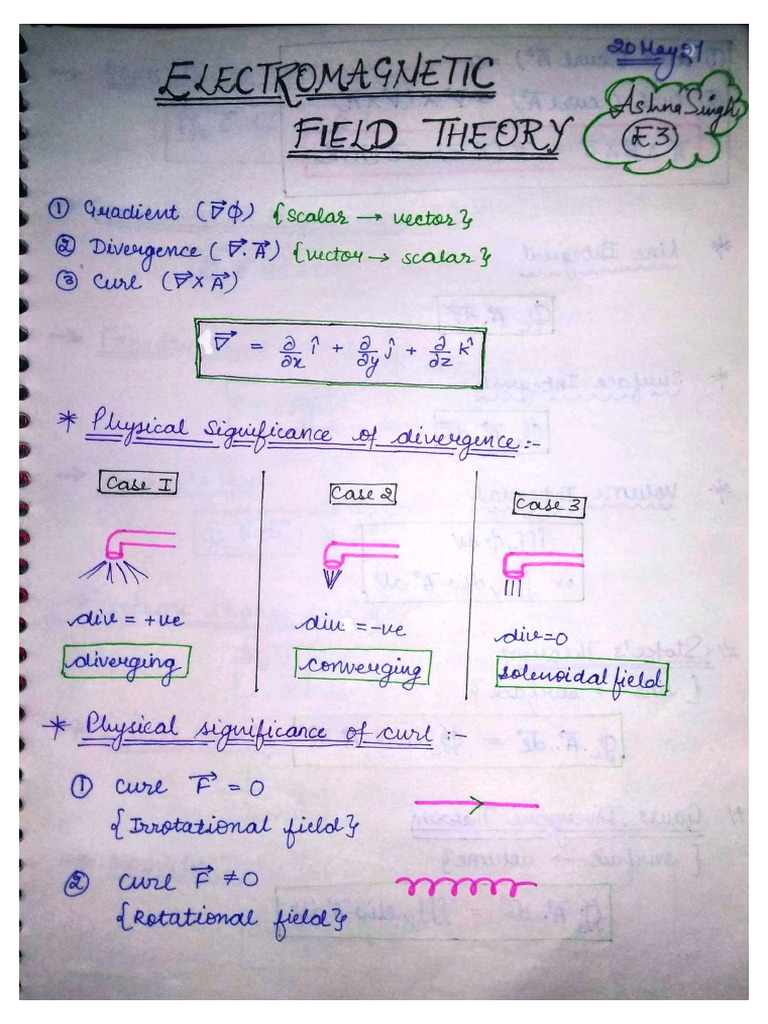 20 May 21
ELECTROMAGNETIC
FIELD THEORY
Ashna Singh
E3
① Gradient (∇⃗ϕ) {scalar → vector}
② Divergence (∇⃗.A⃗) {vector → scalar}
③ Curl (∇⃗×A⃗)
∇⃗ = ∂/∂x î + ∂/∂y ĵ + ∂/∂z k̂
* Physical significance of divergence :-
Case I
Case 2
Case 3
div = +ve
div = -ve
div=0
diverging
converging
solenoidal field
* Physical significance of curl :-
① curl F⃗ = 0
{Irrotational field}
② curl F⃗ ≠ 0
{Rotational field}